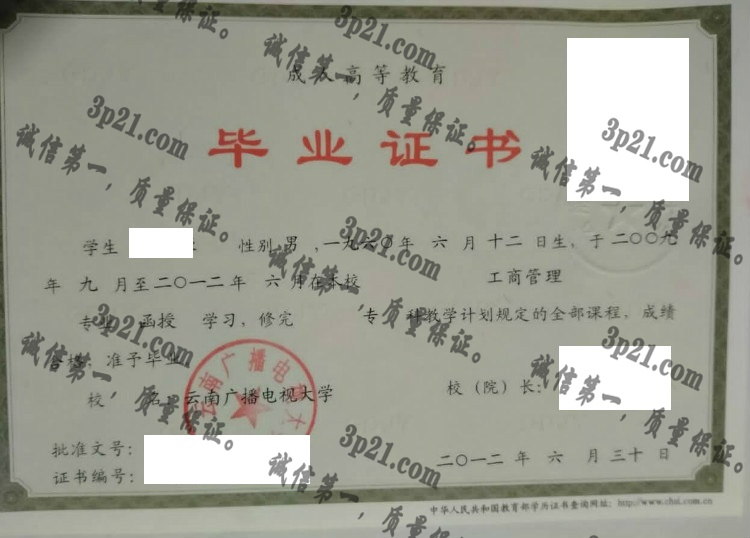 成人高等教育
毕业证书
学生 性别 男 ,一九六〇年 六 月 十二 日生,于 二〇〇九
年 九 月至二〇一二年 六 月在本校 工商管理
专业 函授 学习,修完 专 科教学计划规定的全部课程,成绩
合格,准予毕业
校 名: 云南广播电视大学 校(院)长:
云南广播电视大
批准文号:
证书编号:
二〇一二年 六 月 三十 日
中华人民共和国教育部学历证书查询网址: http://www.chsi.com.cn
质量保证。
3p21.com
诚信第一,质量保证。
3p21.com
诚信第一,质量保证。
3p21.com
诚信第一,质量保证。
3p21.com
诚信第一,质量保证。
3p21.com
诚信第一,质量保证。
3p21.com
诚信第一,质量保证。
3p21.com
诚信第一,质量保证。